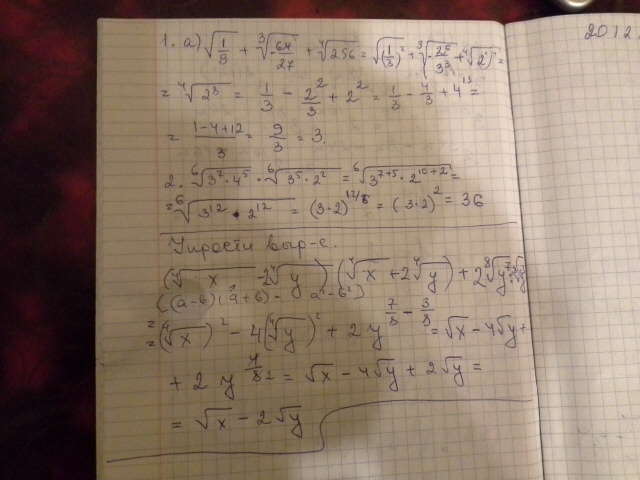 2012.
1. а) √(1/9) + ∛(-64/27) + ∜256 = √((1/3)²) + ∛(-2⁶/3³) + ∜(2⁸) =
= ∜(2⁸) = 1/3 - 2²/3 + 2² = 1/3 - 4/3 + 4 =
= (1-4+12)/3 = 9/3 = 3.
2. ⁶√(3⁷·4⁵) · ⁶√(3⁵·2²) = ⁶√(3⁷⁺⁵·2¹⁰⁺²) =
= ⁶√(3¹²·2¹²) = (3·2)^(12/6) = (3·2)² = 36
Упрости выр-е.
(∜x - 2∜y)(∜x + 2∜y) + 2 ⁸√y⁷ : ⁸√y³
((a-б)(a+б) = a²-б²)
= (∜x)² - 4(∜y)² + 2y^(7/8 - 3/8) = √x - 4√y +
+ 2y^(4/8) = √x - 4√y + 2√y =
= √x - 2√y